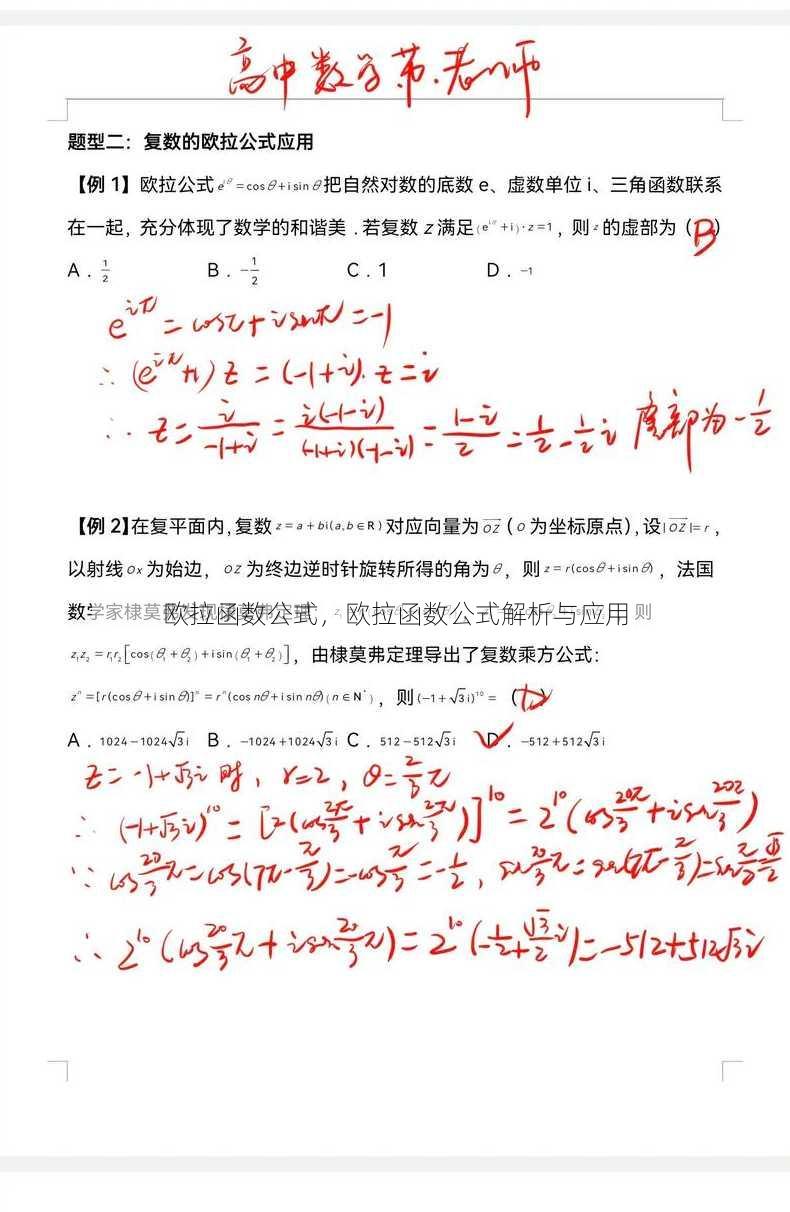 高中数学蒂.老师
题型二：复数的欧拉公式应用
【例 1】欧拉公式 e^{iθ} = cosθ+i sinθ 把自然对数的底数 e、虚数单位 i、三角函数联系
在一起，充分体现了数学的和谐美 .若复数 z 满足 (e^{iπ}+i)·z=1 ，则 z 的虚部为（B）
A . 1/2 B . -1/2 C . 1 D . -1
e^{iπ} = cosπ + i sinπ = -1
∴ (e^{iπ}+i) z = (-1+i). z = i
∴ z = i/(-1+i) = i(-1-i)/((-1+i)(-1-i)) = (1-i)/2 = 1/2 - 1/2 i 虚部为 -1/2
【例 2】在复平面内,复数 z=a+bi(a,b∈R) 对应向量为 OZ（O 为坐标原点），设|OZ|=r ，
以射线 Ox 为始边， OZ 为终边逆时针旋转所得的角为 θ，则 z=r(cosθ+i sinθ) ，法国
数学家棣莫弗 则
欧拉函数公式，欧拉函数公式解析与应用
z₁z₂ = r₁r₂[cos(θ₁+θ₂)+i sin(θ₁+θ₂)]，由棣莫弗定理导出了复数乘方公式：
zⁿ=[r(cosθ+i sinθ)]ⁿ = rⁿ(cos nθ+i sin nθ)(n∈N*)，则 (-1+√3i)¹⁰ =（D）
A . 1024-1024√3i B . -1024+1024√3i C . 512-512√3i D . -512+512√3i
z = -1+√3i 时，r=2，θ=2/3 π
∴ (-1+√3i)^{10} = [2(cos 2π/3 + i sin 2π/3)]^{10} = 2^{10}(cos 20π/3 + i sin 20π/3)
∵ cos 20/3 π = cos(7π - π/3) = -cos π/3 = -1/2，sin 20/3 π = sin(7π - π/3) = sin π/3 = √3/2
∴ 2^{10}(cos 20/3 π + i sin 20/3 π) = 2^{10}(-1/2 + √3/2 i) = -512+512√3i